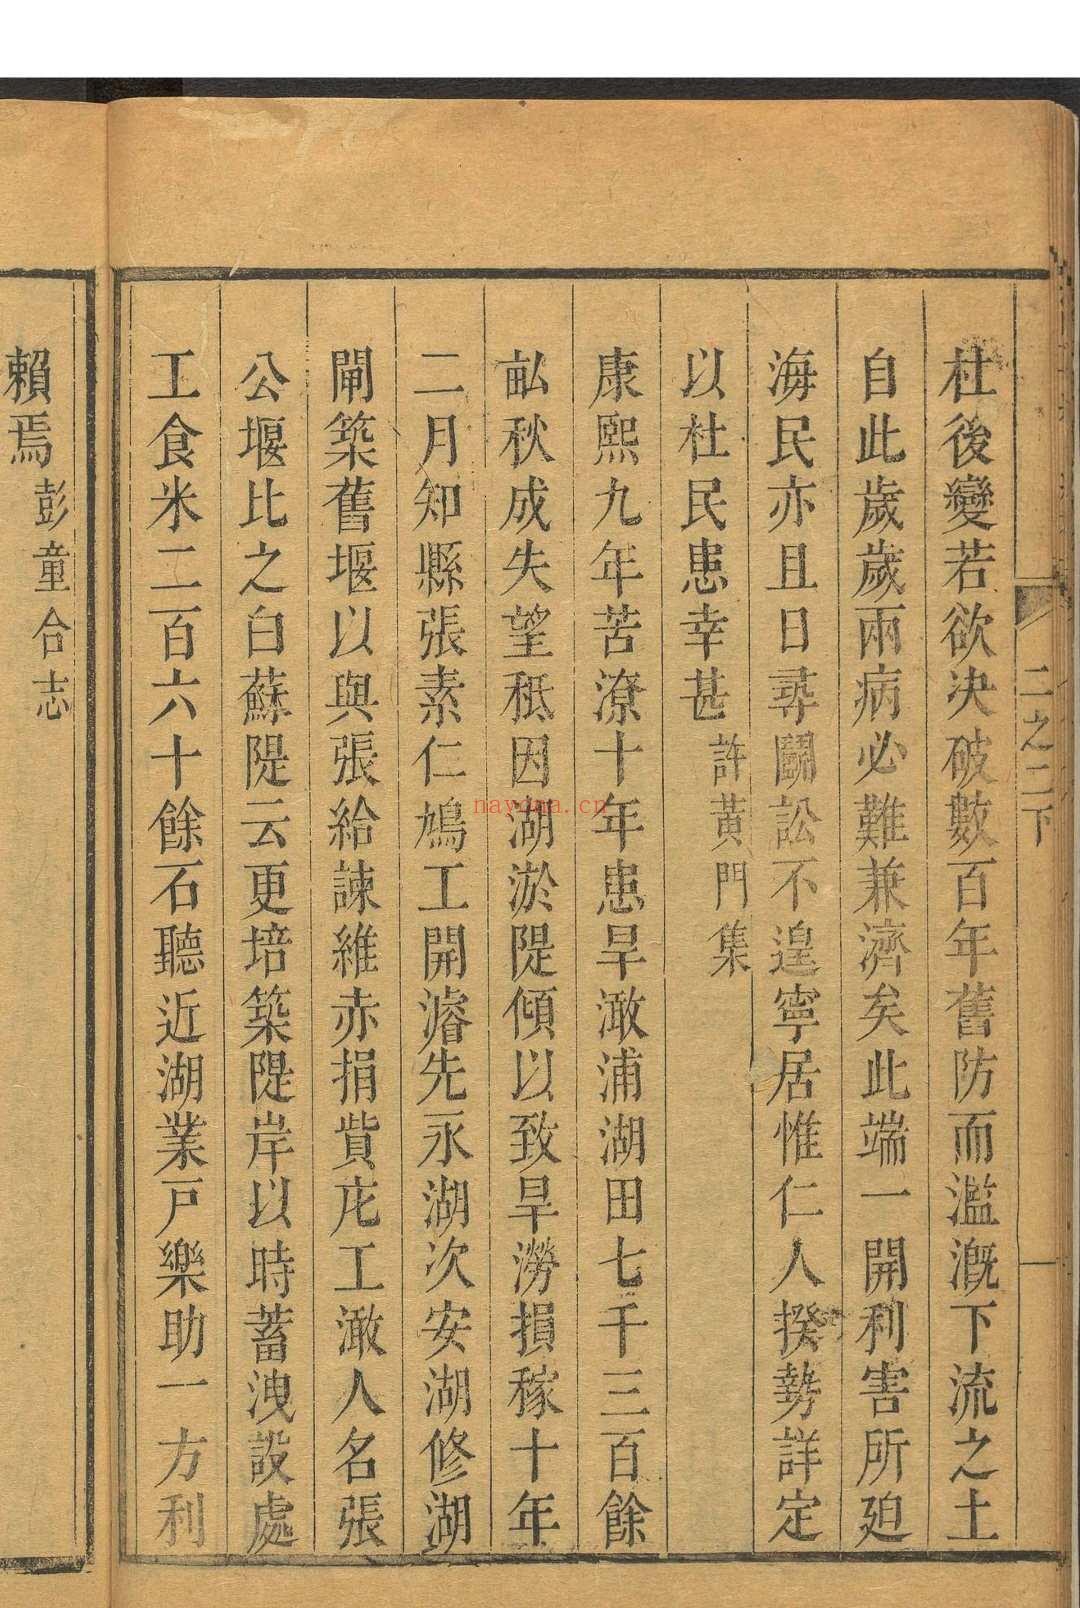 二之二下
杜後變若欲決破數百年舊防而濫溉下流之土
自此歲歲兩病必難兼濟矣此端一開利害所廹
海民亦且日尋鬭訟不遑寧居惟仁人揆勢詳定
以杜民患幸甚許黃門集
康熙九年苦潦十年患旱澉浦湖田七千三百餘
畆秋成失望秪因湖淤隄傾以致旱澇損稼十年
二月知縣張素仁鳩工開濬先永湖次安湖修湖
閘築舊堰以與張給諫維赤捐貲庀工澉人名張
公堰比之白蘇隄云更培築隄岸以時蓄洩設處
工食米二百六十餘石聽近湖業戸樂助一方利
賴焉彭童合志
nayona.cn